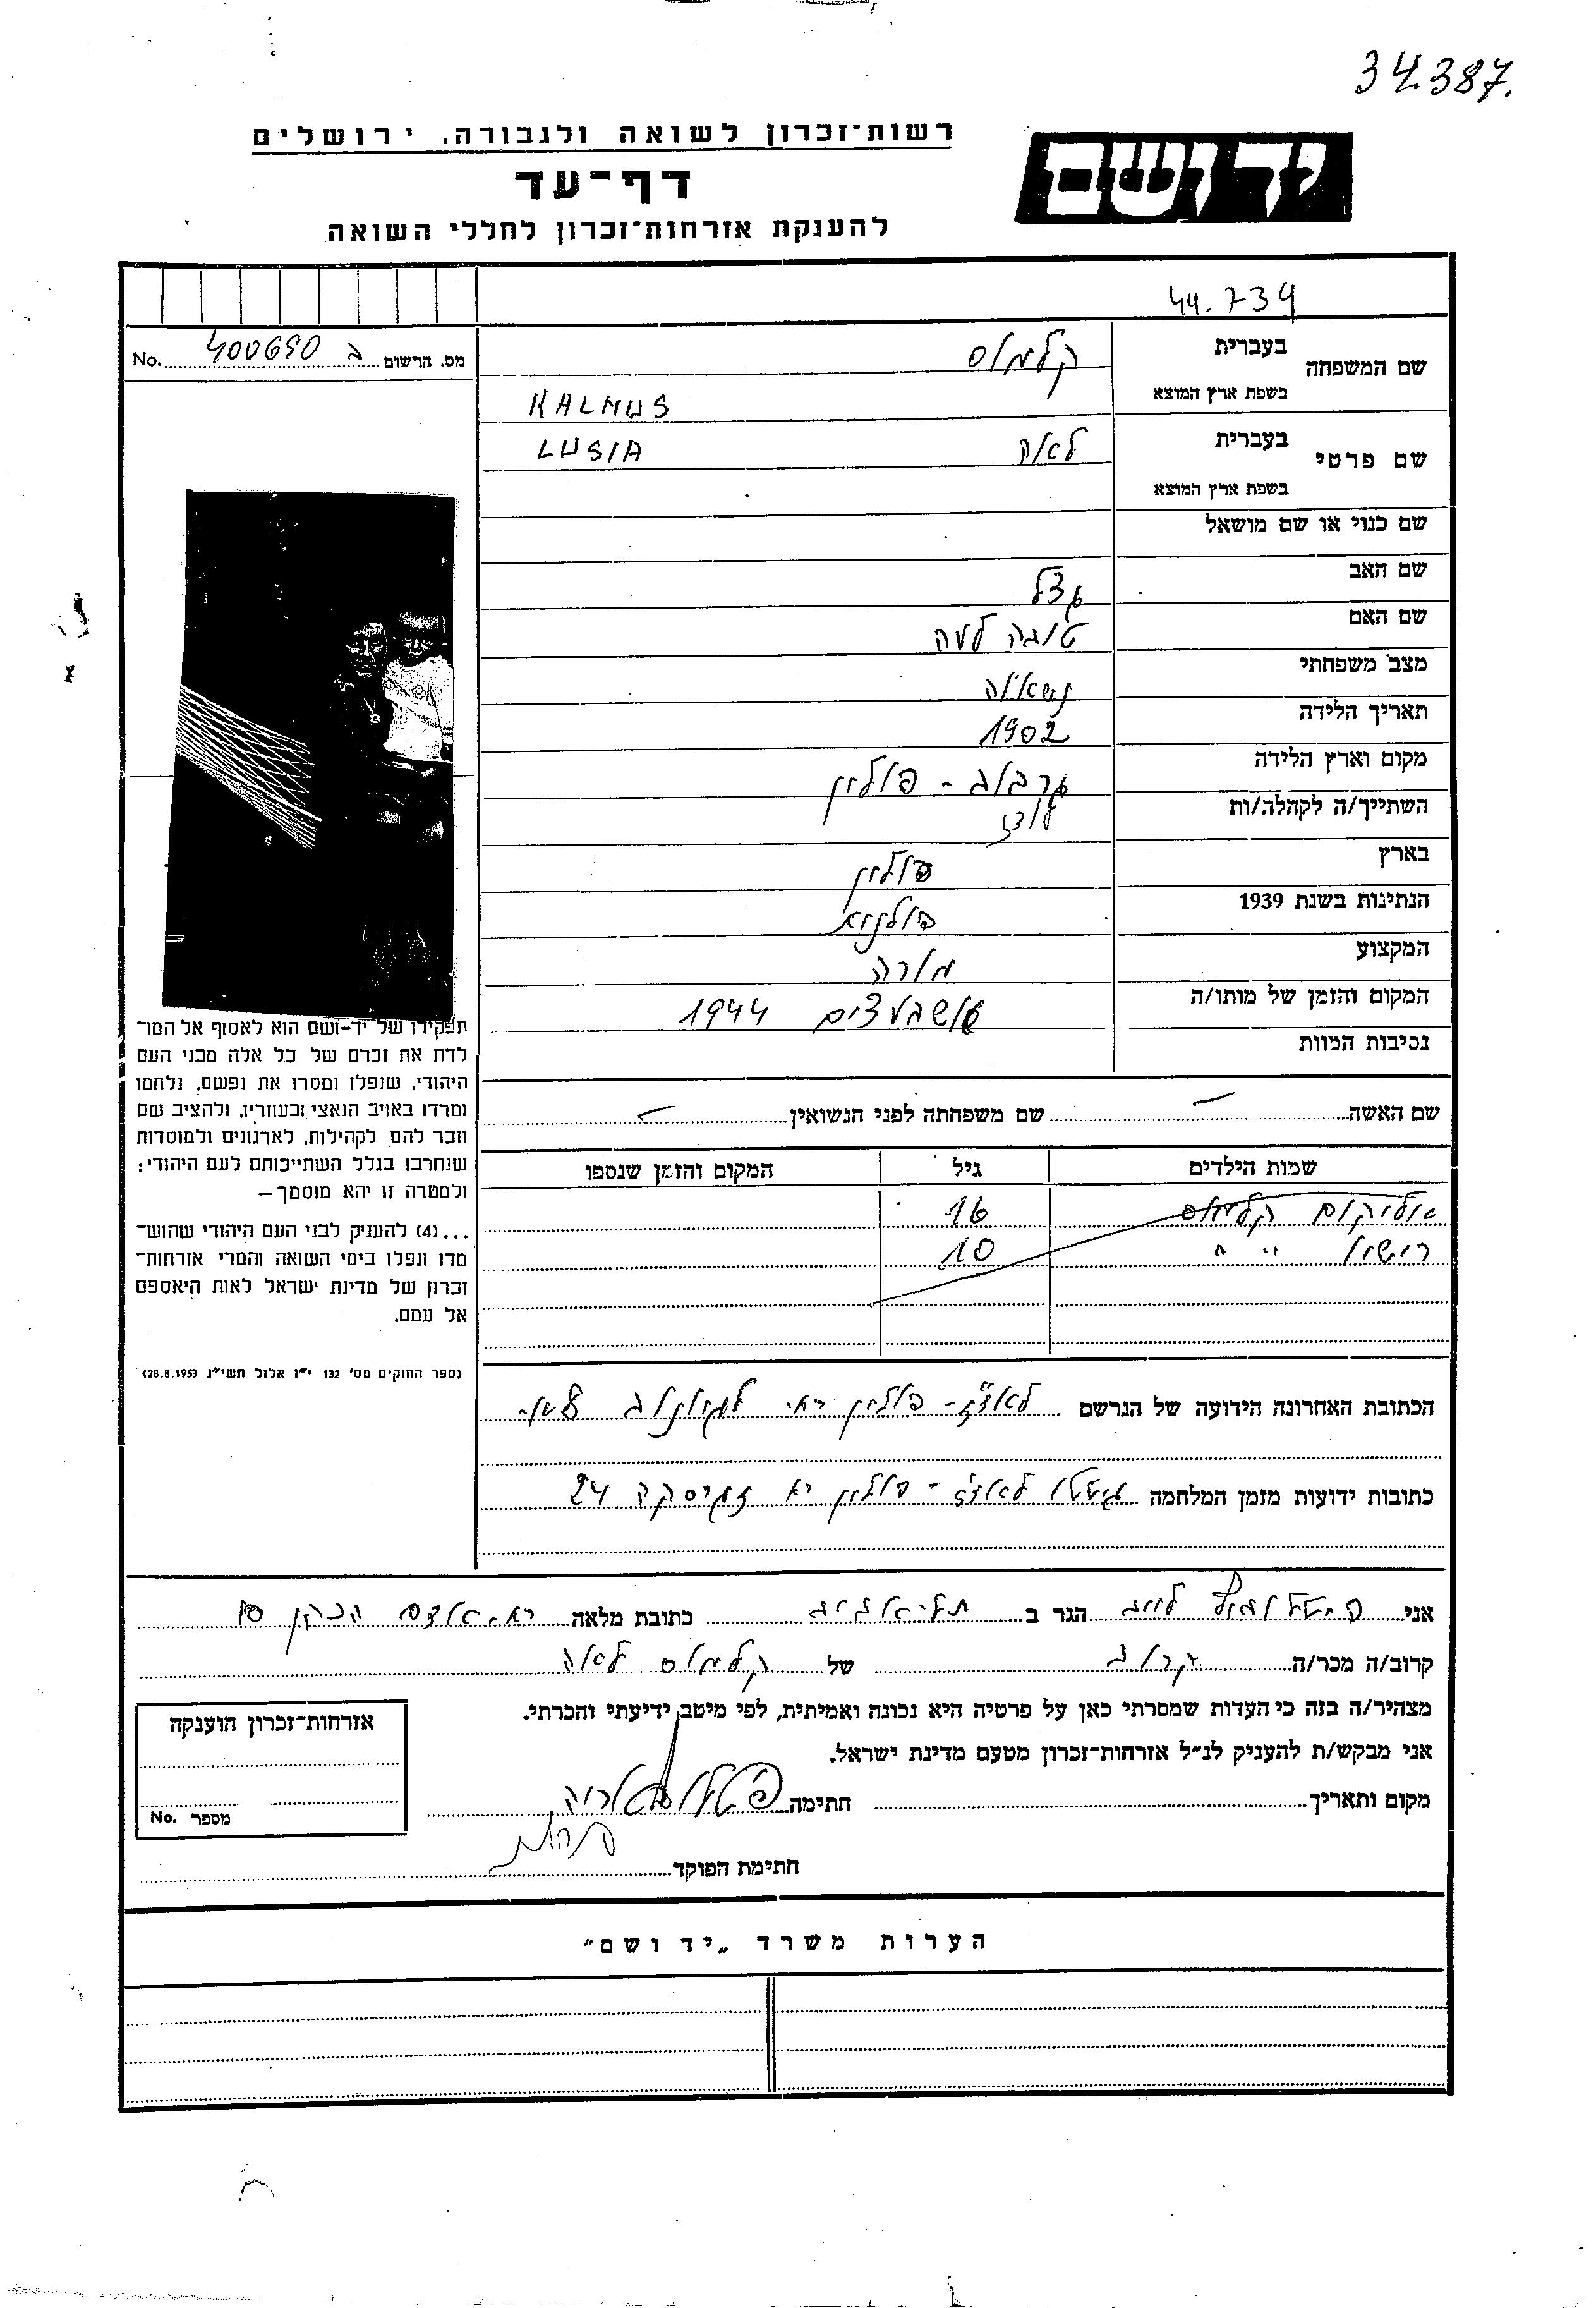 34.387.
רשות־זכרון לשואה ולגבורה, ירושלים
יד ושם
דף־עד
להענקת אזרחות־זכרון לחללי השואה
44.739
מס. הרשום ב 400690 No.
שם המשפחה
בעברית
קלמוס
בשפת ארץ המוצא
KALMUS
שם פרטי
בעברית
לאה
LUSIA
בשפת ארץ המוצא
שם כנוי או שם מושאל
שם האב
שם האם
טובה לאה
מצב משפחתי
נשואה
תאריך הלידה
1902
מקום וארץ הלידה
פולין
השתייך/ה לקהלה/ות
לודז
בארץ
פולין
הנתינות בשנת 1939
פולנית
המקצוע
מורה
המקום והזמן של מותו/ה
אושבצים 1944
נסיבות המוות
שם האשה
שם משפחתה לפני הנשואין
שמות הילדים גיל המקום והזמן שנספו
קלמוס 16
" " 10
הכתובת האחרונה הידועה של הנרשם לאודז - פולין רח.
כתובות ידועות מזמן המלחמה גיטטו לאודז - פולין 24
אני הגר ב תל־אביב כתובת מלאה הכהן 10
קרוב/ה מכר/ה קרוב של קלמוס לאה
מצהיר/ה בזה כי העדות שמסרתי כאן על פרטיה היא נכונה ואמיתית, לפי מיטב ידיעתי והכרתי.
אני מבקש/ת להעניק לנ״ל אזרחות־זכרון מטעם מדינת ישראל.
מקום ותאריך
חתימה
חתימת הפוקד
אזרחות־זכרון הוענקה
מספר No.
תפקידו של יד־ושם הוא לאסוף אל המו־
לדת את זכרם של כל אלה מבני העם
היהודי, שנפלו ומסרו את נפשם, נלחמו
ומרדו באויב הנאצי ובעוזריו, ולהציב שם
וזכר להם לקהילות, לארגונים ולמוסדות
שנחרבו בגלל השתייכותם לעם היהודי:
ולמטרה זו יהא מוסמך—
...(4) להעניק לבני העם היהודי שהוש־
מדו ונפלו בימי השואה והמרי אזרחות־
זכרון של מדינת ישראל לאות היאספם
אל עמם.
(ספר החוקים מס' 132 י״ז אלול תשי״ג 28.8.1953)
הערות משרד „יד ושם״